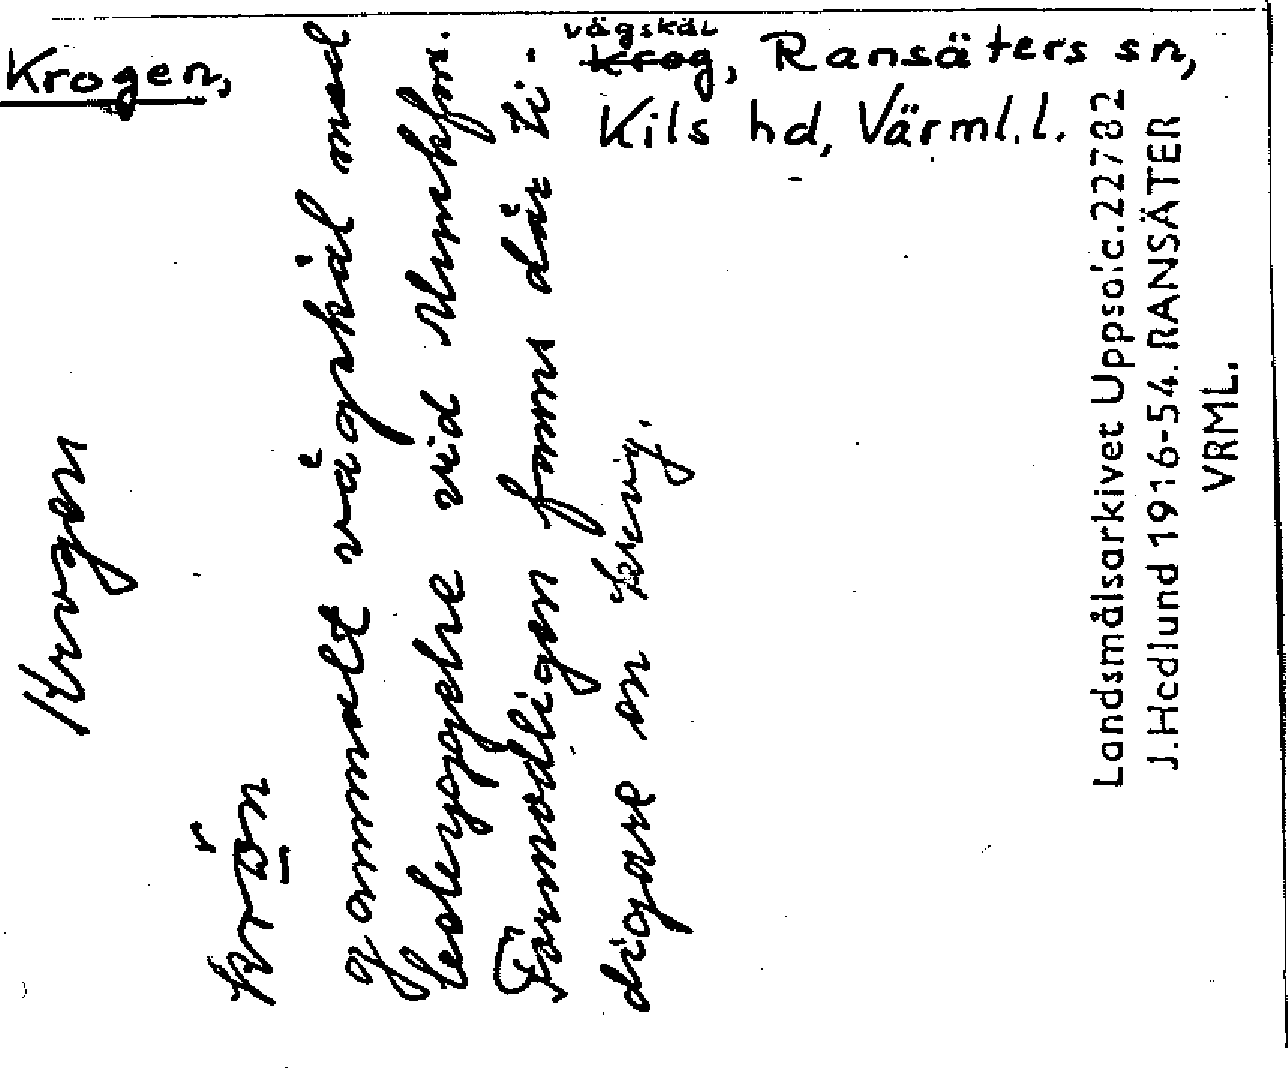 Krogen, vägskäl
krog, Ransäters sn,
Kils hd, Värml.l.
Krogen
krōn
gammalt vägskäl med
bebyggelse vid Munkfors.
Förmodligen fanns där ti-
digare en krog.
Landsmålsarkivet Uppsala.22782
J.Hedlund 1916-54. RANSÄTER
VRML.